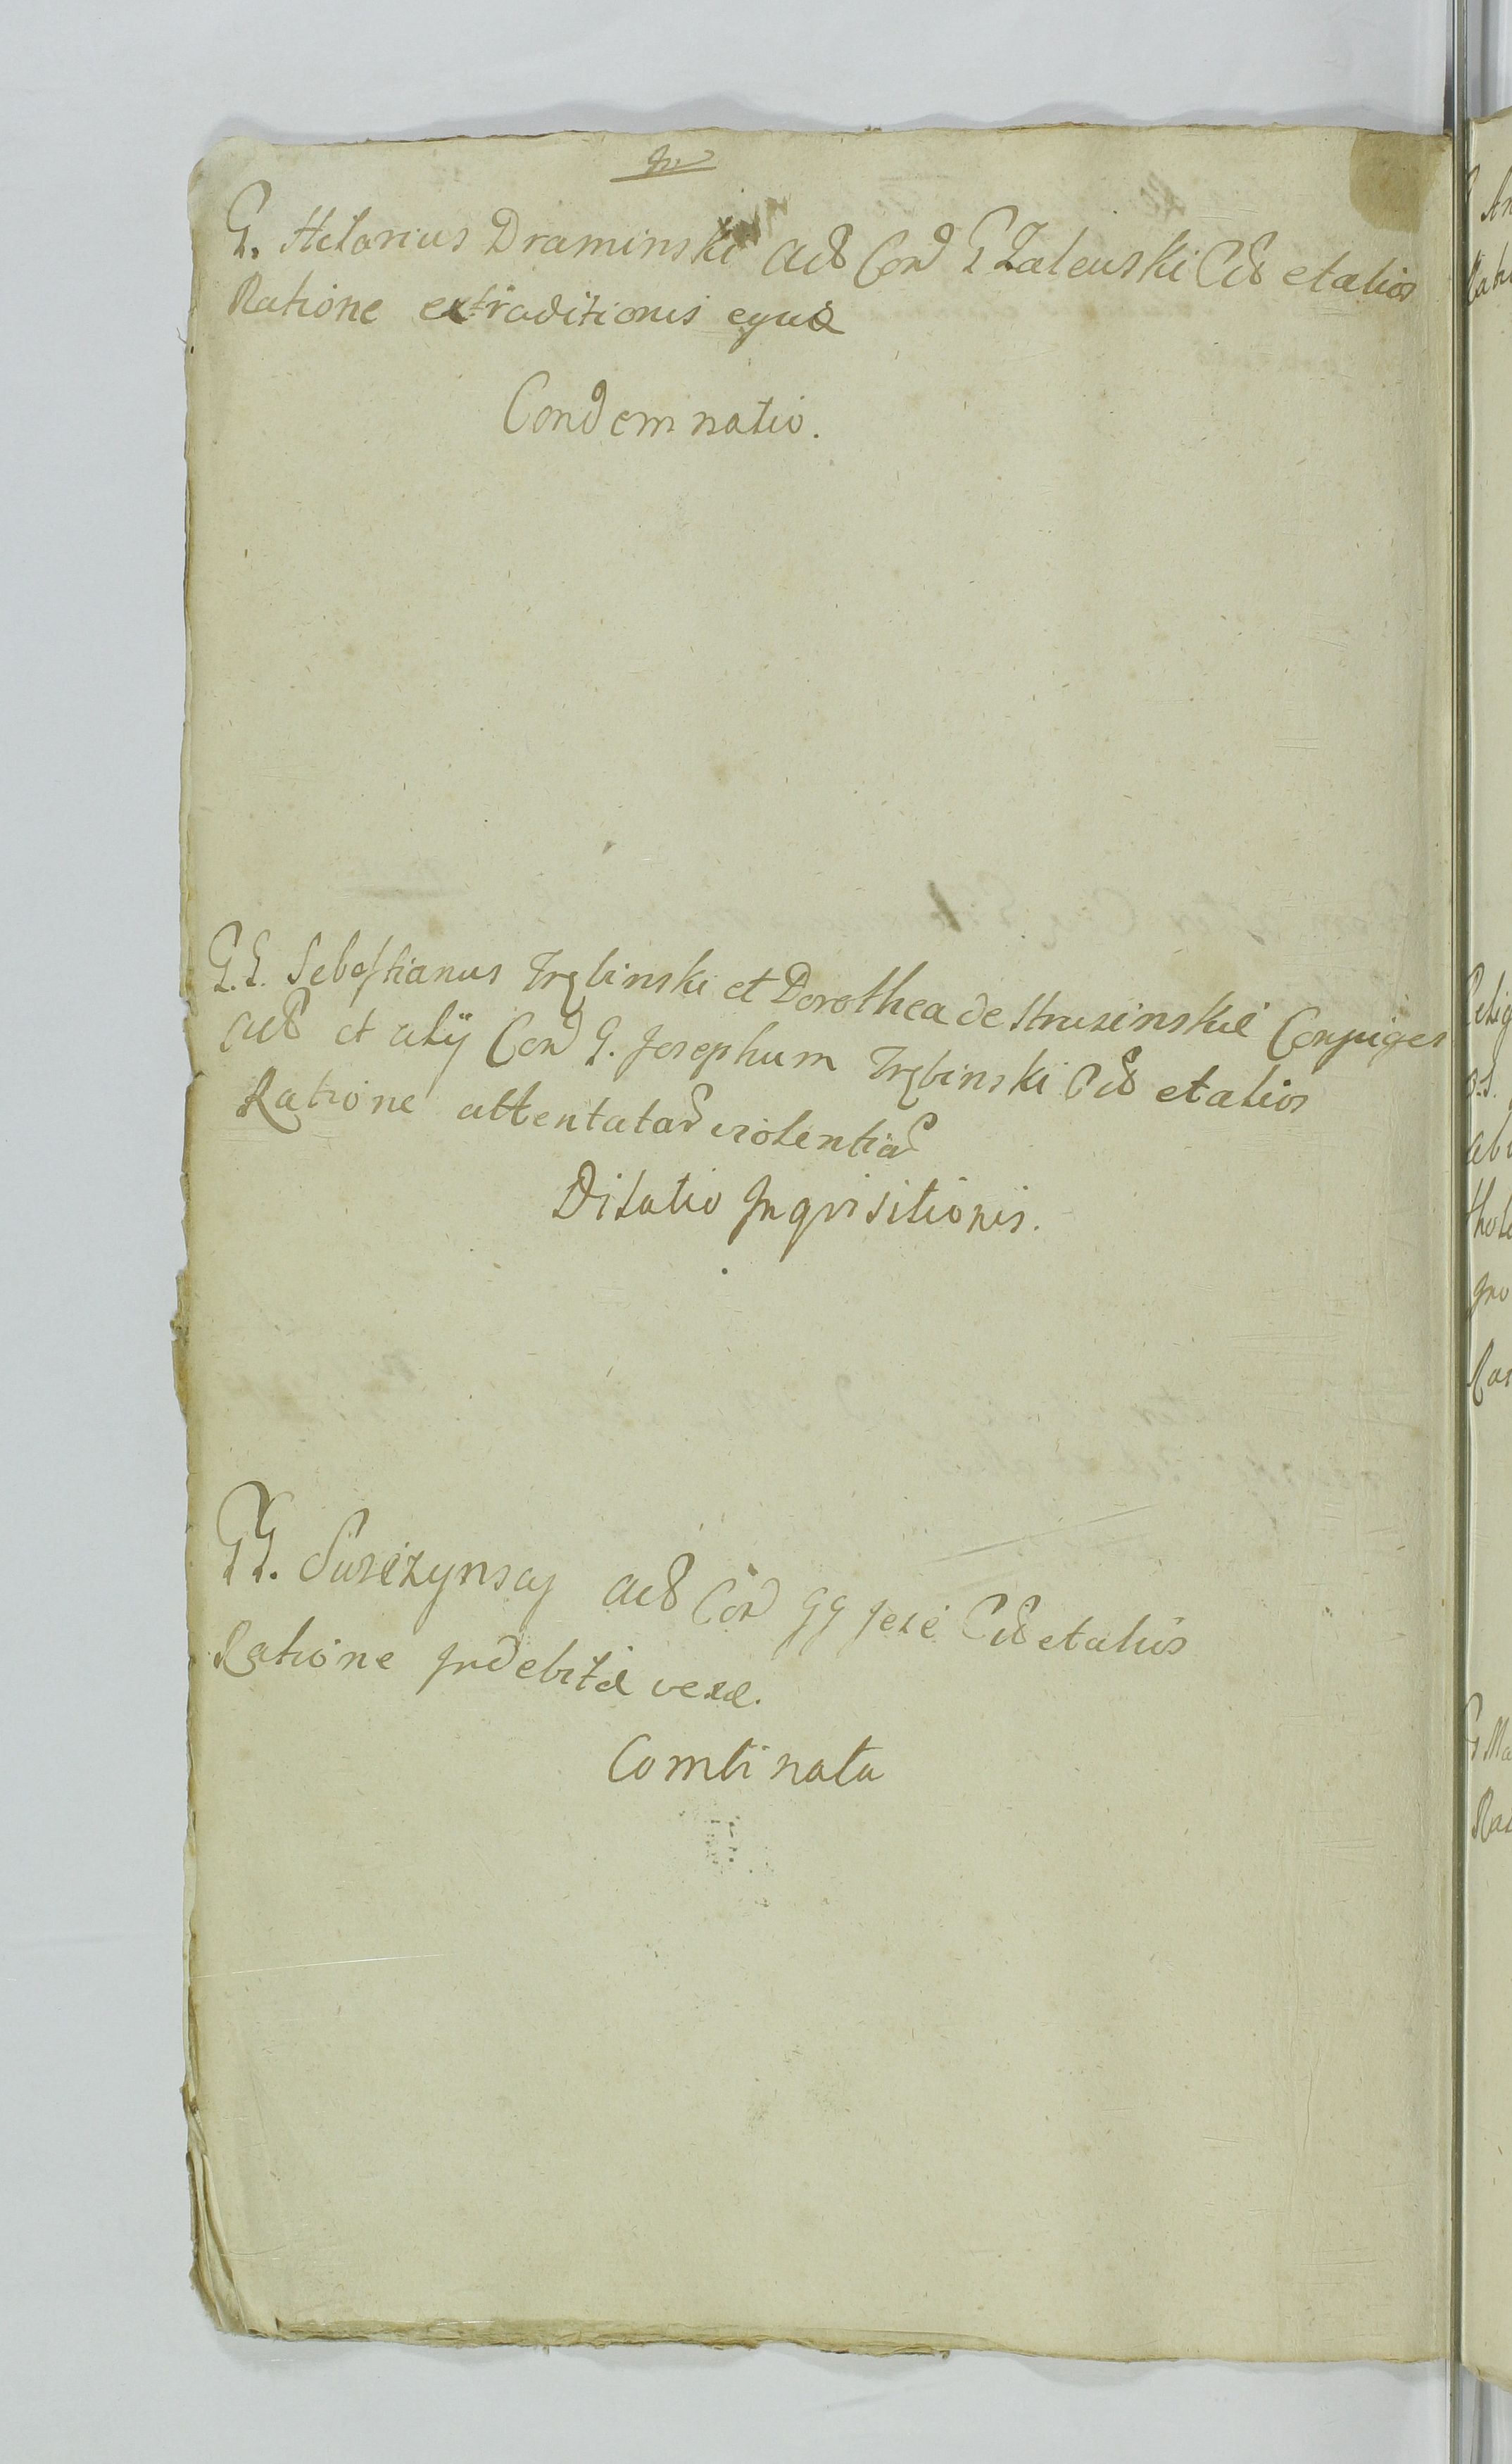 G. Hilarius Draminski Act Con G Zaleuski Cit et alios
Ratione extraditionis equi
Condemnatio.
G.G. Sebastianus Trębinski et Dorothea de Strusinskie Conjuges
Act et alij Con G. Josephum Trębinski Cit et alios
Ratione attentatar violentiar
Dilatio Inqvisitionis.
GG. Act Con GG Cit et alios
Ratione Indebitæ vexæ.
Combinata